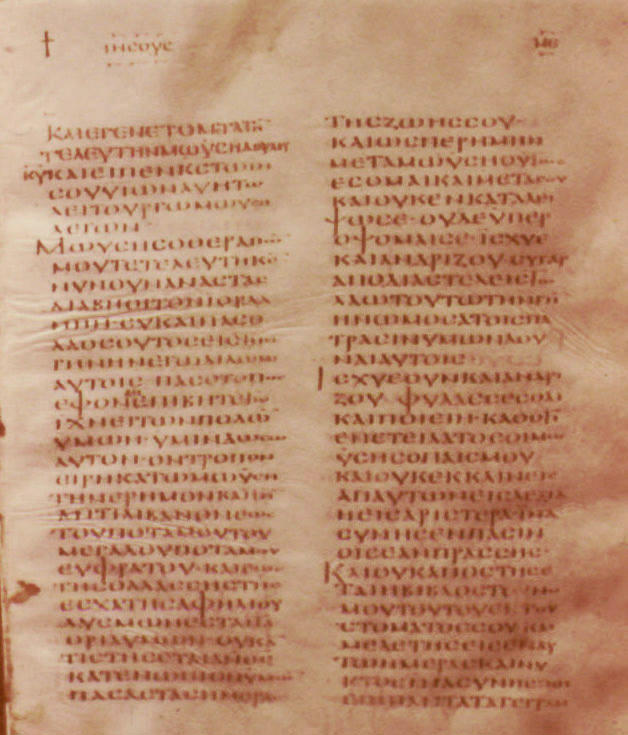 ΙΗϹΟΥϹ
ΚΑΙΕΓΕΝΕΤΟΜΕΤΑΤΗ
ΤΕΛΕΥΤΗΝΜΩΥϹΗΔΟΥΛΟΥ
ΚΥΚΑΙΕΙΠΕΝΚϹΤΩΙΗ
ϹΟΥΥΙΩΝΑΥΗΤΩ
ΛΕΙΤΟΥΡΓΩΜΩΥϹΗ
ΛΕΓΩΝ
ΜΩΥϹΗϹΟΘΕΡΑΠΩ
ΜΟΥΤΕΤΕΛΕΥΤΗΚΕ
ΝΥΝΟΥΝΑΝΑϹΤΑϹ
ΔΙΑΒΗΘΙΤΟΝΙΟΡΔΑ
ΝΗΝ·ϹΥΚΑΙΠΑϹΟ
ΛΑΟϹΟΥΤΟϹΕΙϹΤΗ
ΓΗΝΗΝΕΓΩΔΙΔΩΜΙ
ΑΥΤΟΙϹ ΠΑϹΟΤΟΠΟϹ
ΕΦΟΝΕΠΙΒΗΤΕΤΩ
ΙΧΝΕΙΤΩΝΠΟΔΩ
ΥΜΩΝ·ΥΜΙΝΔΩϹΩ
ΑΥΤΟΝ·ΟΝΤΡΟΠΟΝ
ΕΙΡΗΚΑΤΩΜΩΥϹΗ
ΤΗΝΕΡΗΜΟΝΚΑΙΤΟ
ΑΝΤΙΛΙΒΑΝΟΝΕΩϹ
ΤΟΥΠΟΤΑΜΟΥΤΟΥ
ΜΕΓΑΛΟΥΠΟΤΑΜΟΥ
ΕΥΦΡΑΤΟΥ·ΚΑΙΕΩϹ
ΤΗϹΘΑΛΑϹϹΗϹΤΗϹ
ΕϹΧΑΤΗϹΑΦΗΛΙΟΥ
ΔΥϹΜΩΝΕϹΤΑΙΤΑ
ΟΡΙΑΥΜΩΝ·ΟΥΚΑ
ΤΙϹΤΗϹΕΤΑΙΑΝΟϹ
ΚΑΤΕΝΩΠΙΟΝΥΜΩ
ΠΑϹΑϹΤΑϹΗΜΕΡΑϹ
ΤΗϹΖΩΗϹϹΟΥ
ΚΑΙΩϹΠΕΡΗΜΗΝ
ΜΕΤΑΜΩΥϹΗΟΥΤΩϹ
ΕϹΟΜΑΙΚΑΙΜΕΤΑϹΟΥ
ΚΑΙΟΥΚΕΝΚΑΤΑΛΕΙ
ΨΩϹΕ·ΟΥΔΕΥΠΕΡ
ΟΨΟΜΑΙϹΕ·ΙϹΧΥΕ
ΚΑΙΑΝΔΡΙΖΟΥ·ϹΥΓΑΡ
ΑΠΟΔΙΑϹΤΕΛΕΙϹΤΩ
ΛΑΩΤΟΥΤΩΤΗΝΓΗ
ΗΝΩΜΟϹΑΤΟΙϹΠΑ
ΤΡΑϹΙΝΥΜΩΝΔΟΥ
ΝΑΙΑΥΤΟΙϹ
ΙϹΧΥΕΟΥΝΚΑΙΑΝΔΡΙ
ΖΟΥ ΦΥΛΑϹϹΕϹΘΑΙ
ΚΑΙΠΟΙΕΙΝ·ΚΑΘΟΤΙ
ΕΝΕΤΕΙΛΑΤΟϹΟΙΜΩ
ΥϹΗϹΟΠΑΙϹΜΟΥ
ΚΑΙΟΥΚΕΚΚΛΙΝΕΙϹ
ΑΠΑΥΤΩΝΕΙϹΔΕΞΙΑ
ΗΕΙϹΑΡΙϹΤΕΡΑΙΝΑ
ϹΥΝΗϹΕΝΠΑϹΙΝ
ΟΙϹΕΑΝΠΡΑϹϹΗϹ·
ΚΑΙΟΥΚΑΠΟϹΤΗϹΕ
ΤΑΙΗΒΙΒΛΟϹΤΟΥΝΟ
ΜΟΥΤΟΥΤΟΥΕΚΤΟΥ
ϹΤΟΜΑΤΟϹϹΟΥΚΑΙ
ΜΕΛΕΤΗϹΕΙϹΕΝΑΥ
ΤΩΗΜΕΡΑϹΚΑΙΝΥ
ΚΤΟϹΙΝΑϹΥΝΗϹΠΟΙ
ΕΙΝΠΑΝΤΑΤΑΓΕΓΡΑΜ